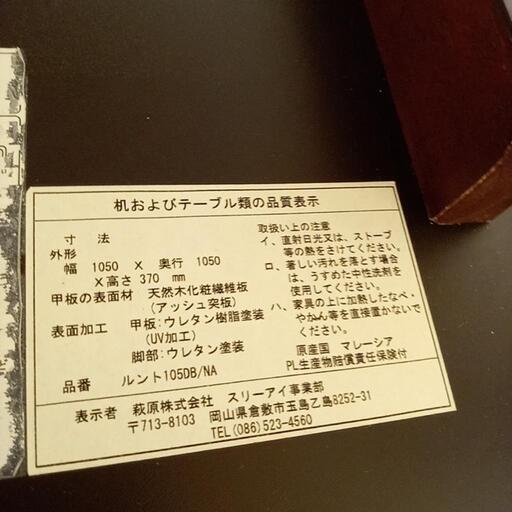 机およびテーブル類の品質表示
寸 法
外形
幅 1050 × 奥行 1050
×高さ 370 mm
甲板の表面材 天然木化粧繊維板
(アッシュ突板)
表面加工 甲板:ウレタン樹脂塗装
(UV加工)
脚部:ウレタン塗装
品番 ルント105DB/NA
取扱い上の注意
イ、直射日光又は、ストーブ
等の熱をさけてください。
ロ、著しい汚れを落とす場合
は、うすめた中性洗剤を
使用してください。
ハ、家具の上に加熱したなべ・
やかん等を直接置かないで
ください。
原産国 マレーシア
PL生産物賠償責任保険付
表示者 萩原株式会社 スリーアイ事業部
〒713-8103 岡山県倉敷市玉島乙島8252-31
TEL(086)523-4560